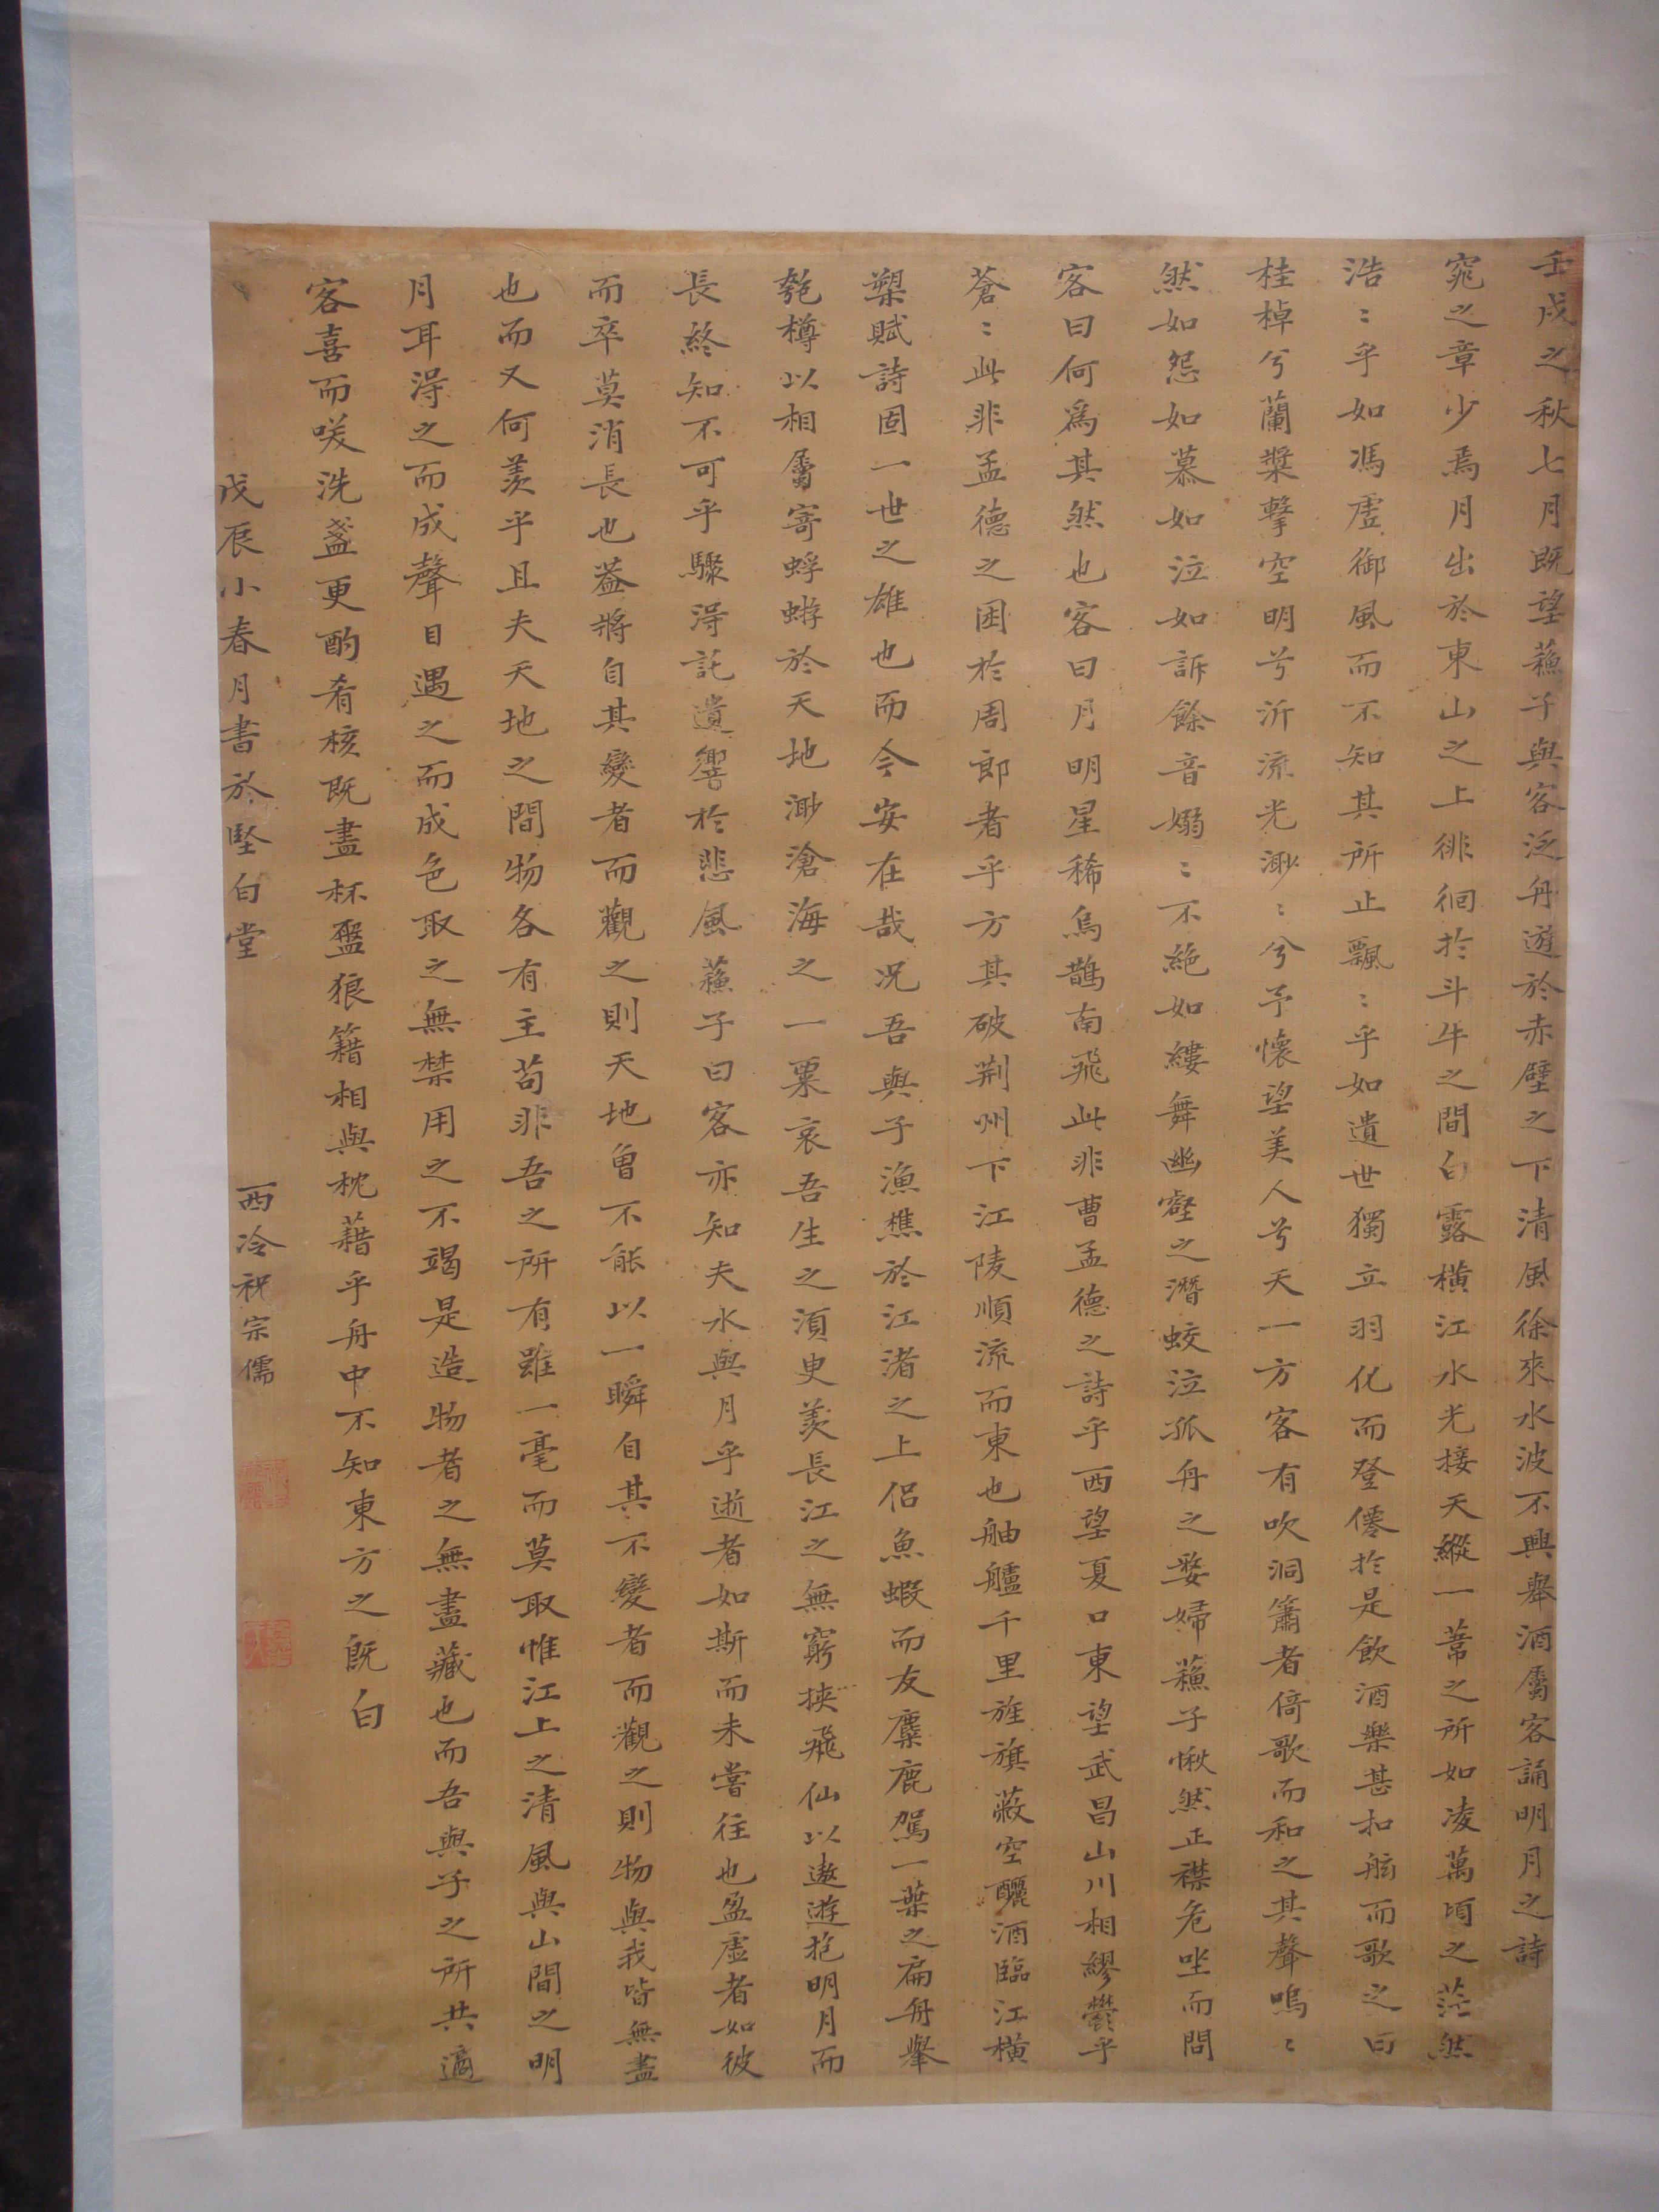 壬戌之秋七月既望蘓子與客泛舟遊於赤壁之下清風徐來水波不興舉酒屬客誦明月之詩
窕之章少焉月出於東山之上徘徊於斗牛之間白露橫江水光接天縱一葦之所如凌萬頃之茫然
浩〻乎如馮虛御風而不知其所止飄〻乎如遺世獨立羽化而登僊於是飲酒樂甚扣舷而歌之曰
桂棹兮蘭槳擊空明兮泝流光渺〻兮予懷望美人兮天一方客有吹洞簫者倚歌而和之其聲嗚〻
然如怨如慕如泣如訴餘音嫋〻不絕如縷舞幽壑之潛蛟泣孤舟之嫠婦蘓子愀然正襟危坐而問
客曰何爲其然也客曰月明星稀烏鵲南飛此非曹孟德之詩乎西望夏口東望武昌山川相繆鬱乎
蒼〻此非孟德之困於周郎者乎方其破荆州下江陵順流而東也舳艫千里旌旗蔽空釃酒臨江橫
槊賦詩固一世之雄也而今安在哉况吾與子漁樵於江渚之上侶魚蝦而友麋鹿駕一葉之扁舟舉
匏樽以相屬寄蜉蝣於天地渺滄海之一粟哀吾生之須臾羨長江之無窮挾飛仙以遨遊抱明月而
長終知不可乎驟得託遺響於悲風蘓子曰客亦知夫水與月乎逝者如斯而未嘗往也盈虛者如彼
而卒莫消長也葢將自其變者而觀之則天地曾不能以一瞬自其不變者而觀之則物與我皆無盡
也而又何羨乎且夫天地之間物各有主苟非吾之所有雖一毫而莫取惟江上之清風與山間之明
月耳得之而成聲目遇之而成色取之無禁用之不竭是造物者之無盡藏也而吾與子之所共適
客喜而咲洗盞更酌肴核既盡杯盤狼籍相與枕藉乎舟中不知東方之既白
戊辰小春月書於堅白堂
西泠祝宗儒